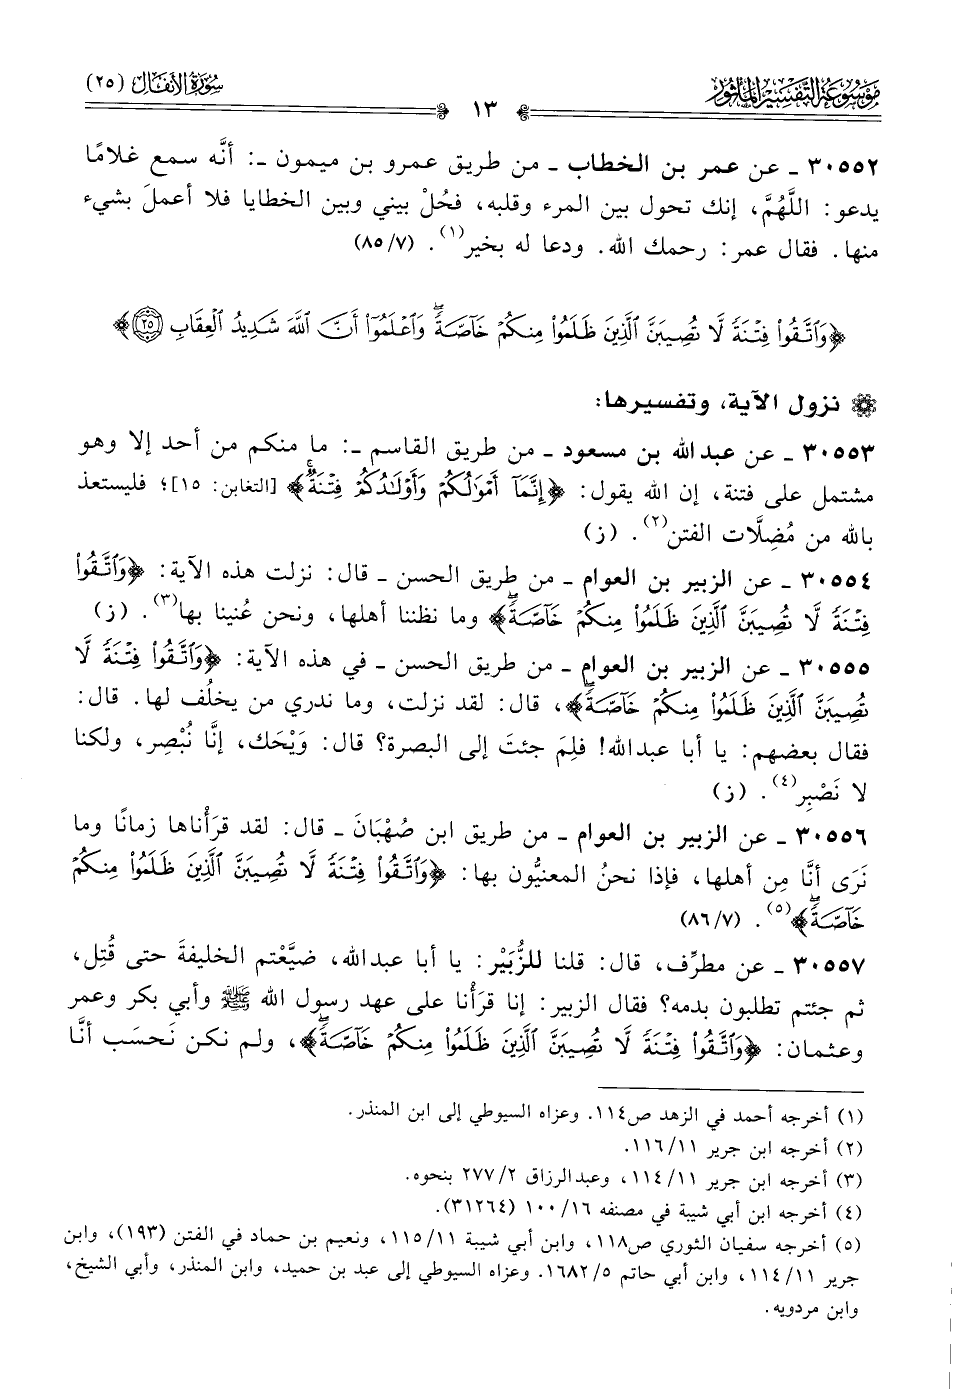 موسوعة التفسير المأثور
١٣
سورة الأنفال (٢٥)
٣٠٥٥٢ ـ عن عمر بن الخطاب ـ من طريق عمرو بن ميمون ـ: أنَّه سمع غلامًا
يدعو: اللَّهُمَّ، إنك تحول بين المرء وقلبه، فحُلْ بيني وبين الخطايا فلا أعملَ بشيء
منها. فقال عمر: رحمك الله. ودعا له بخير(١). (٨٥/٧)
﴿وَٱتَّقُوا۟ فِتْنَةً لَّا تُصِيبَنَّ ٱلَّذِينَ ظَلَمُوا۟ مِنكُمْ خَآصَّةً ۖ وَٱعْلَمُوٓا۟ أَنَّ ٱللَّهَ شَدِيدُ ٱلْعِقَابِ ٢٥﴾
نزول الآية، وتفسيرها:
٣٠٥٥٣ ـ عن عبدالله بن مسعود ـ من طريق القاسم ـ: ما منكم من أحد إلا وهو
مشتمل على فتنة، إن الله يقول: ﴿إِنَّمَآ أَمْوَٰلُكُمْ وَأَوْلَـٰدُكُمْ فِتْنَةٌ ۚ﴾ [التغابن: ١٥]؛ فليستعذ
بالله من مُضِلَّات الفتن(٢). (ز)
٣٠٥٥٤ ـ عن الزبير بن العوام ـ من طريق الحسن ـ قال: نزلت هذه الآية: ﴿وَٱتَّقُوا۟
فِتْنَةً لَّا تُصِيبَنَّ ٱلَّذِينَ ظَلَمُوا۟ مِنكُمْ خَآصَّةً ۖ﴾ وما نظننا أهلها، ونحن عُنينا بها(٣). (ز)
٣٠٥٥٥ ـ عن الزبير بن العوام ـ من طريق الحسن ـ في هذه الآية: ﴿وَٱتَّقُوا۟ فِتْنَةً لَّا
تُصِيبَنَّ ٱلَّذِينَ ظَلَمُوا۟ مِنكُمْ خَآصَّةً ۖ﴾، قال: لقد نزلت، وما ندري من يخلُف لها. قال:
فقال بعضهم: يا أبا عبدالله! فلِمَ جئتَ إلى البصرة؟ قال: وَيْحَك، إنَّا نُبْصِر، ولكنا
لا نَصْبِر(٤). (ز)
٣٠٥٥٦ ـ عن الزبير بن العوام ـ من طريق ابن صُهْبَانَ ـ قال: لقد قرَأْناها زمانًا وما
نَرَى أنَّا مِن أهلها، فإذا نحنُ المعنيُّون بها: ﴿وَٱتَّقُوا۟ فِتْنَةً لَّا تُصِيبَنَّ ٱلَّذِينَ ظَلَمُوا۟ مِنكُمْ
خَآصَّةً ۖ﴾(٥). (٨٦/٧)
٣٠٥٥٧ ـ عن مطرِّف، قال: قلنا للزُّبَيْر: يا أبا عبدالله، ضيَّعْتم الخليفةَ حتى قُتِل،
ثم جئتم تطلبون بدمه؟ فقال الزبير: إنا قرَأْنا على عهد رسول الله ﷺ وأبي بكر وعمر
وعثمان: ﴿وَٱتَّقُوا۟ فِتْنَةً لَّا تُصِيبَنَّ ٱلَّذِينَ ظَلَمُوا۟ مِنكُمْ خَآصَّةً ۖ﴾، ولم نكن نَحسَب أنَّا
(١) أخرجه أحمد في الزهد ص١١٤. وعزاه السيوطي إلى ابن المنذر.
(٢) أخرجه ابن جرير ١١٦/١١.
(٣) أخرجه ابن جرير ١١٤/١١، وعبدالرزاق ٢٧٧/٢ بنحوه.
(٤) أخرجه ابن أبي شيبة في مصنفه ١٠٠/١٦ (٣١٢٦٤).
(٥) أخرجه سفيان الثوري ص١١٨، وابن أبي شيبة ١١٥/١١، ونعيم بن حماد في الفتن (١٩٣)، وابن
جرير ١١٤/١١، وابن أبي حاتم ١٦٨٢/٥. وعزاه السيوطي إلى عبد بن حميد، وابن المنذر، وأبي الشيخ،
وابن مردويه.